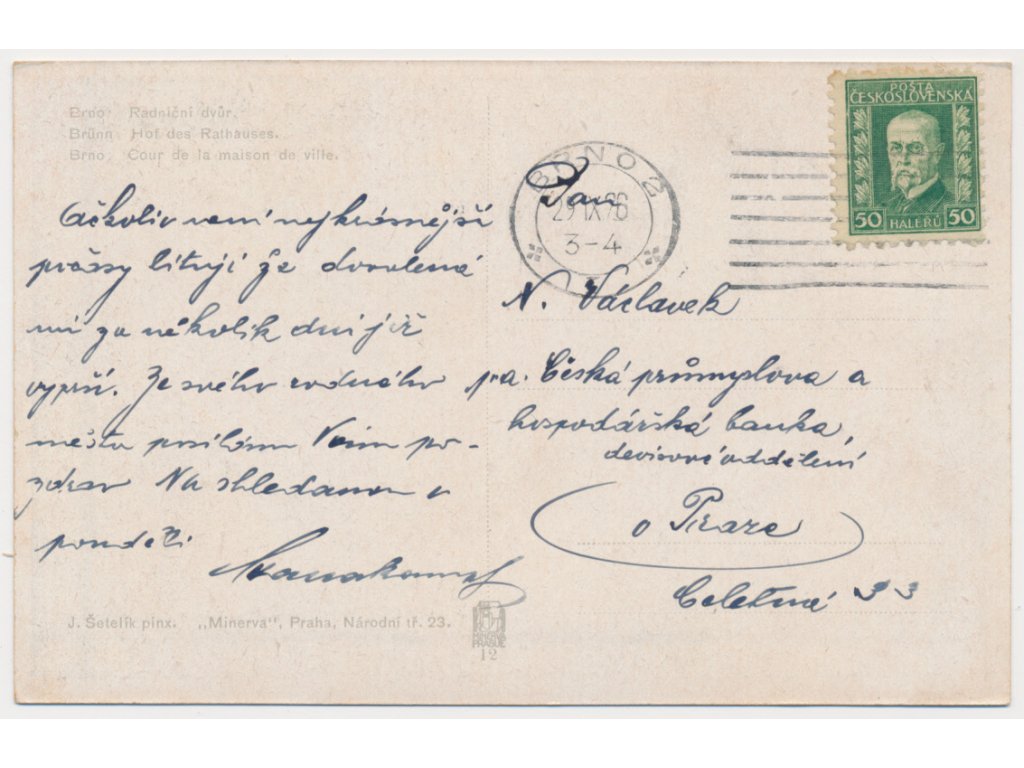 Brno: Radniční dvůr.
Brünn: Hof des Rathauses.
Brno: Cour de la maison de ville.
Ačkoliv není nejkrásnější
lituji že dovolená
mi za několik dní již
vyprší. Ze svého rodného
města posílám Vám po-
zdrav Na shledanou v
pondělí
J. Šetelík pinx. „Minerva", Praha, Národní tř. 23.
PRAGUE
12
BRNO 2
29 IX 26
3-4
POŠTA
ČESKOSLOVENSKÁ
50 HALÉŘŮ 50
Pan
N. Václavek
p.a. Česká průmyslova a
hospodářská banka,
devisové oddělení
v Praze
Celetná 33